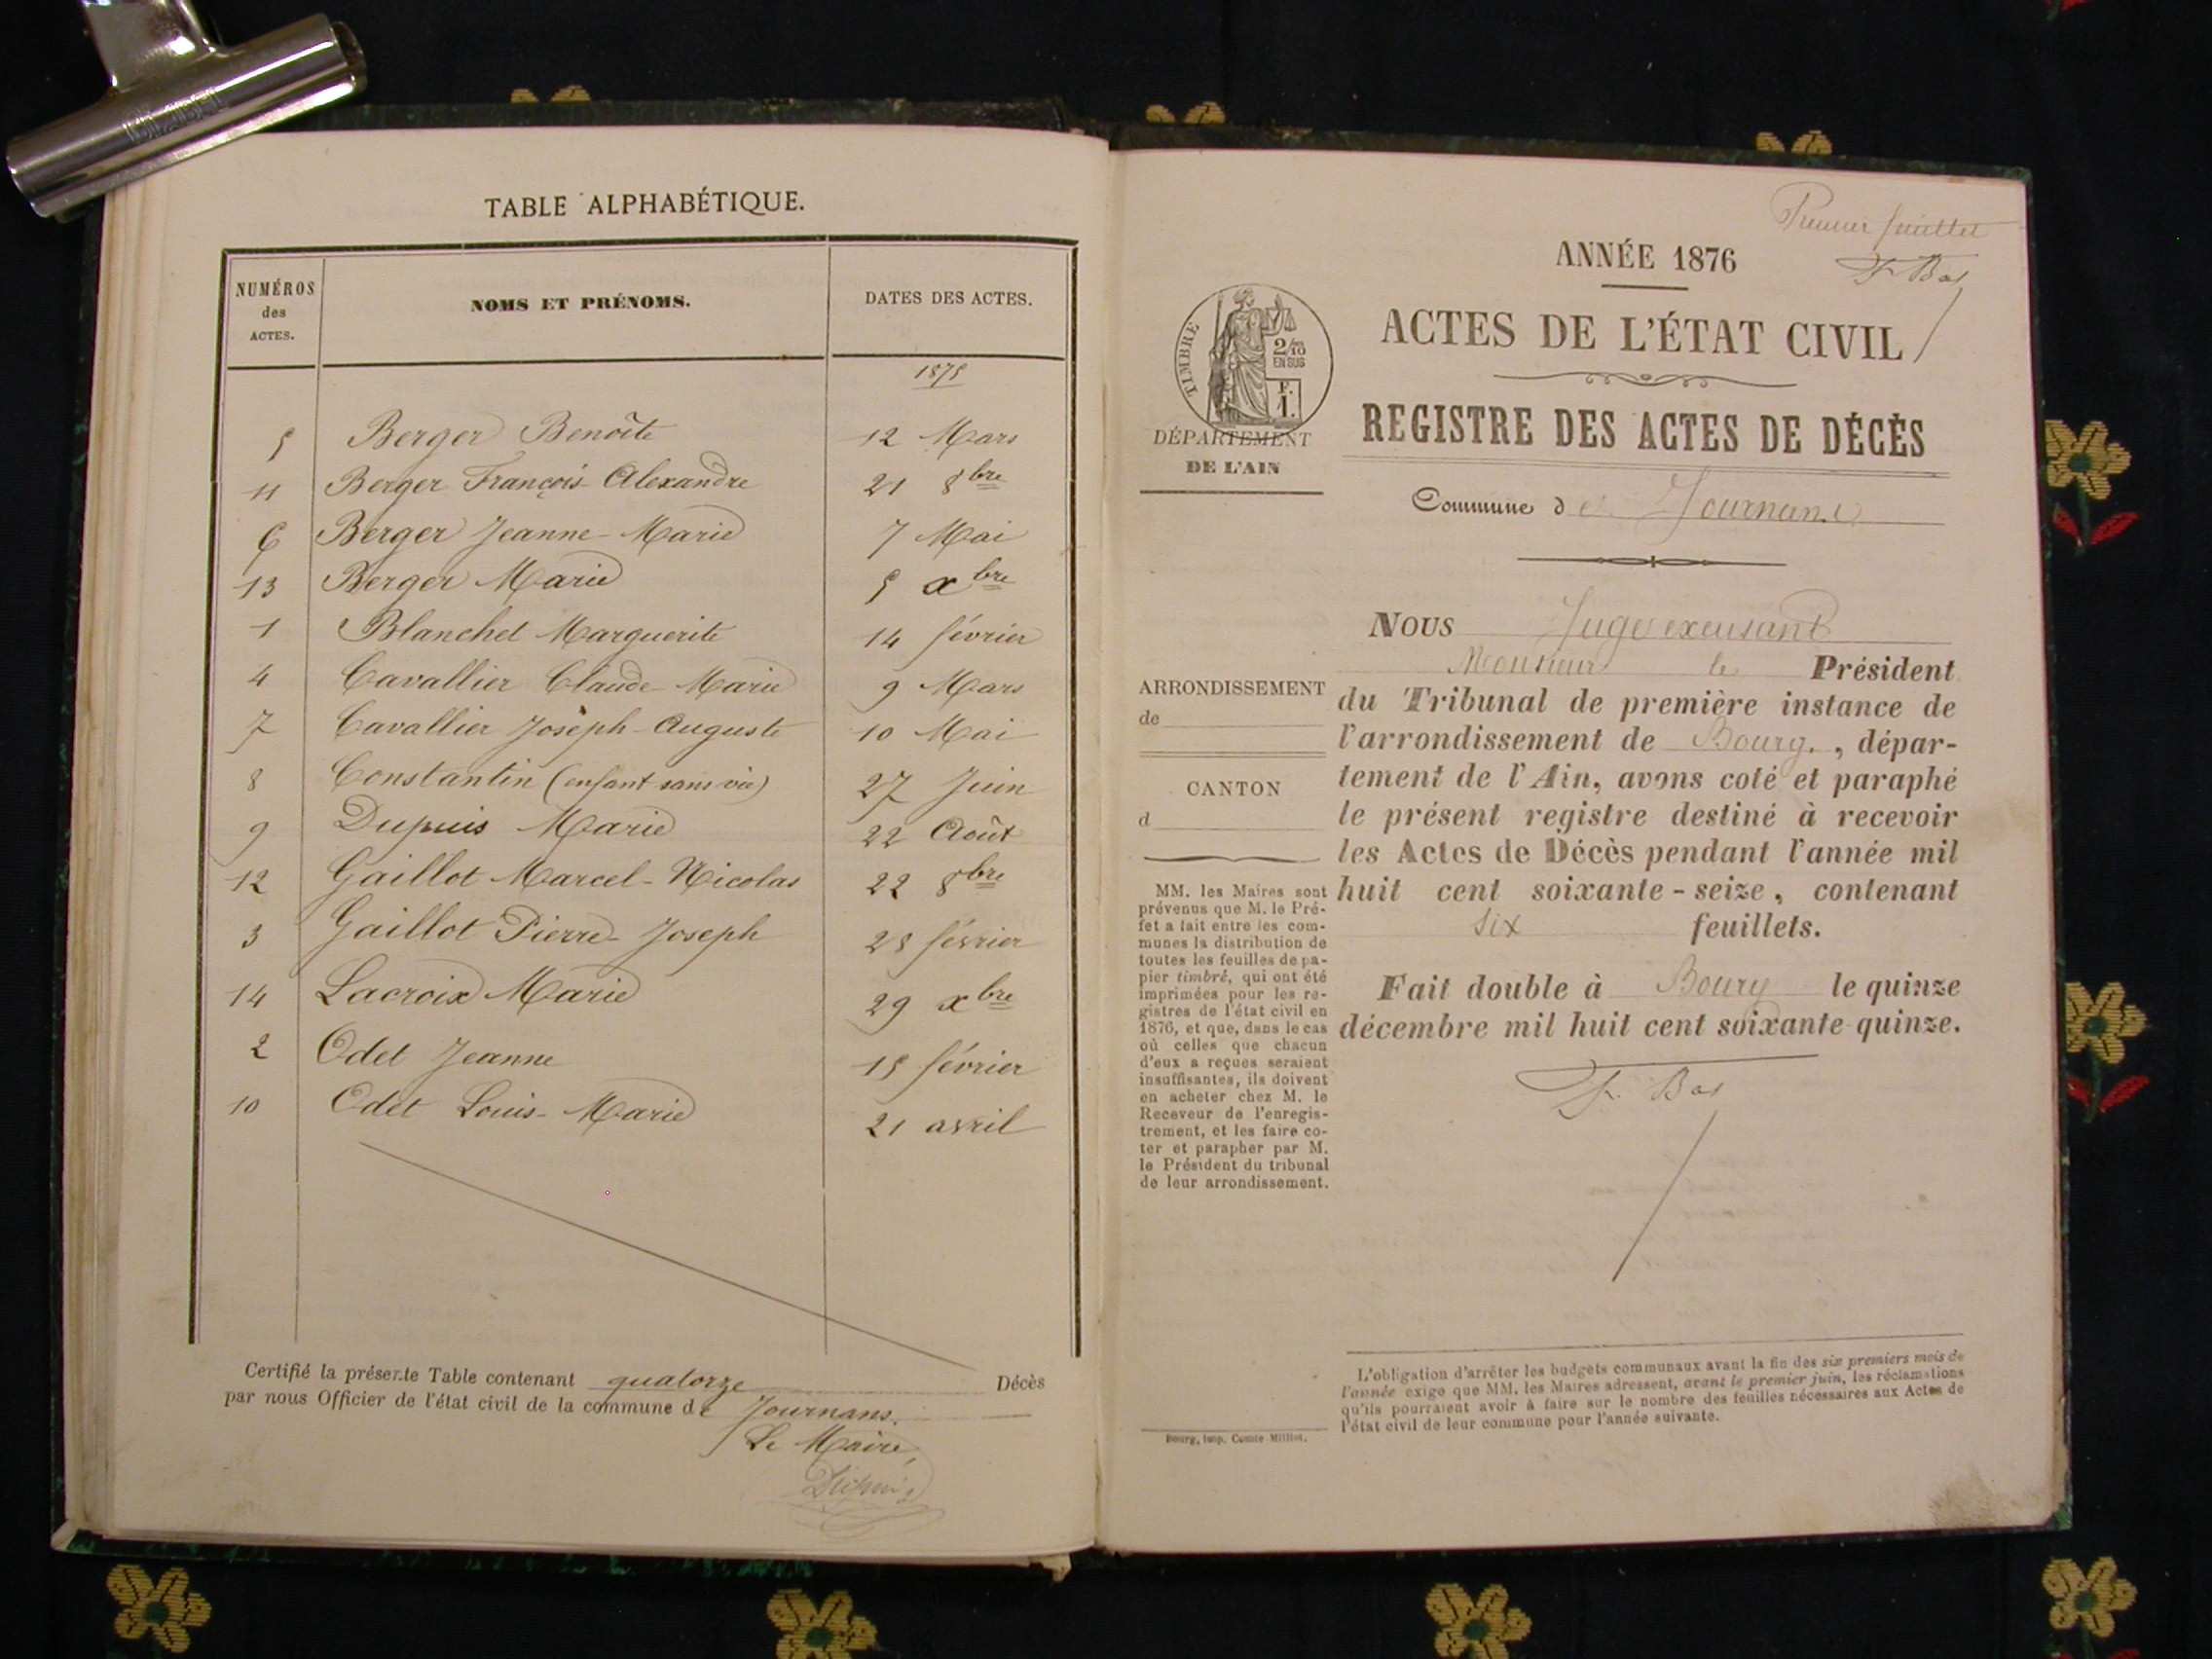 TABLE ALPHABÉTIQUE.
NUMÉROS des ACTES. NOMS ET PRÉNOMS. DATES DES ACTES.
1875
5 Berger Benoîte 12 Mars
11 Berger François-Alexandre 21 8bre
6 Berger Jeanne-Marie 7 Mai
13 Berger Marie 5 xbre
1 Blanchet Marguerite 14 février
4 Cavallier Claude-Marie 9 Mars
7 Cavallier Joseph-Auguste 10 Mai
8 Constantin (enfant sans vie) 27 Juin
9 Dupuis Marie 22 Août
12 Gaillot Marcel-Nicolas 22 8bre
3 Gaillot Pierre-Joseph 28 février
14 Lacroix Marie 29 xbre
2 Odet Jeanne 15 février
10 Odet Louis-Marie 21 avril
Certifié la présente Table contenant quatorze Décès
par nous Officier de l'état civil de la commune de Journans.
Le Maire,
Dupuis
Premier feuillet
F. Bas
ANNÉE 1876
ACTES DE L'ÉTAT CIVIL
REGISTRE DES ACTES DE DÉCÈS
TIMBRE
2/10
EN SUS
F.
1.
DÉPARTEMENT
DE L'AIN
Commune de Journans
ARRONDISSEMENT
de
CANTON
d
MM. les Maires sont
prévenus que M. le Pré-
fet a fait entre les com-
munes la distribution de
toutes les feuilles de pa-
pier timbré, qui ont été
imprimées pour les re-
gistres de l'état civil en
1876, et que, dans le cas
où celles que chacun
d'eux a reçues seraient
insuffisantes, ils doivent
en acheter chez M. le
Receveur de l'enregis-
trement, et les faire co-
ter et parapher par M.
le Président du tribunal
de leur arrondissement.
NOUS Juge excusant
Monsieur le Président
du Tribunal de première instance de
l'arrondissement de Bourg., dépar-
tement de l'Ain, avons coté et paraphé
le présent registre destiné à recevoir
les Actes de Décès pendant l'année mil
huit cent soixante-seize, contenant
six feuillets.
Fait double à Bourg le quinze
décembre mil huit cent soixante-quinze.
F. Bas
L'obligation d'arrêter les budgets communaux avant la fin des six premiers mois de
l'année exige que MM. les Maires adressent, avant le premier juin, les réclamations
qu'ils pourraient avoir à faire sur le nombre des feuilles nécessaires aux Actes de
l'état civil de leur commune pour l'année suivante.
Bourg, imp. Comte-Milliet.